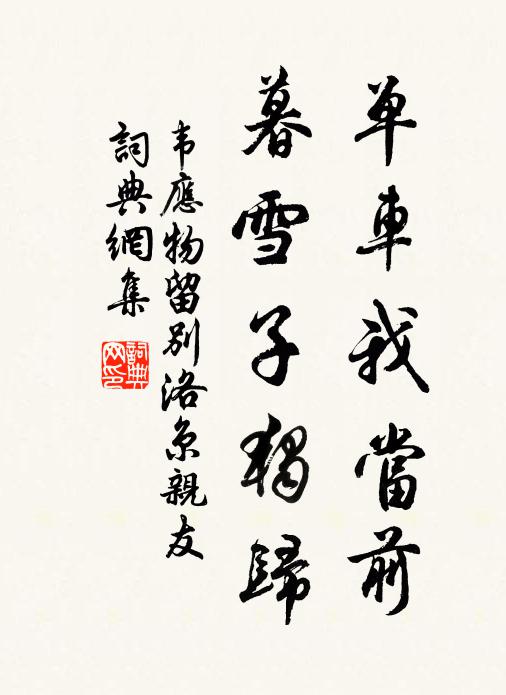 单車我當前
暮雪子獨歸
韦應物留别洛京親友
詞典網集
詞典網印